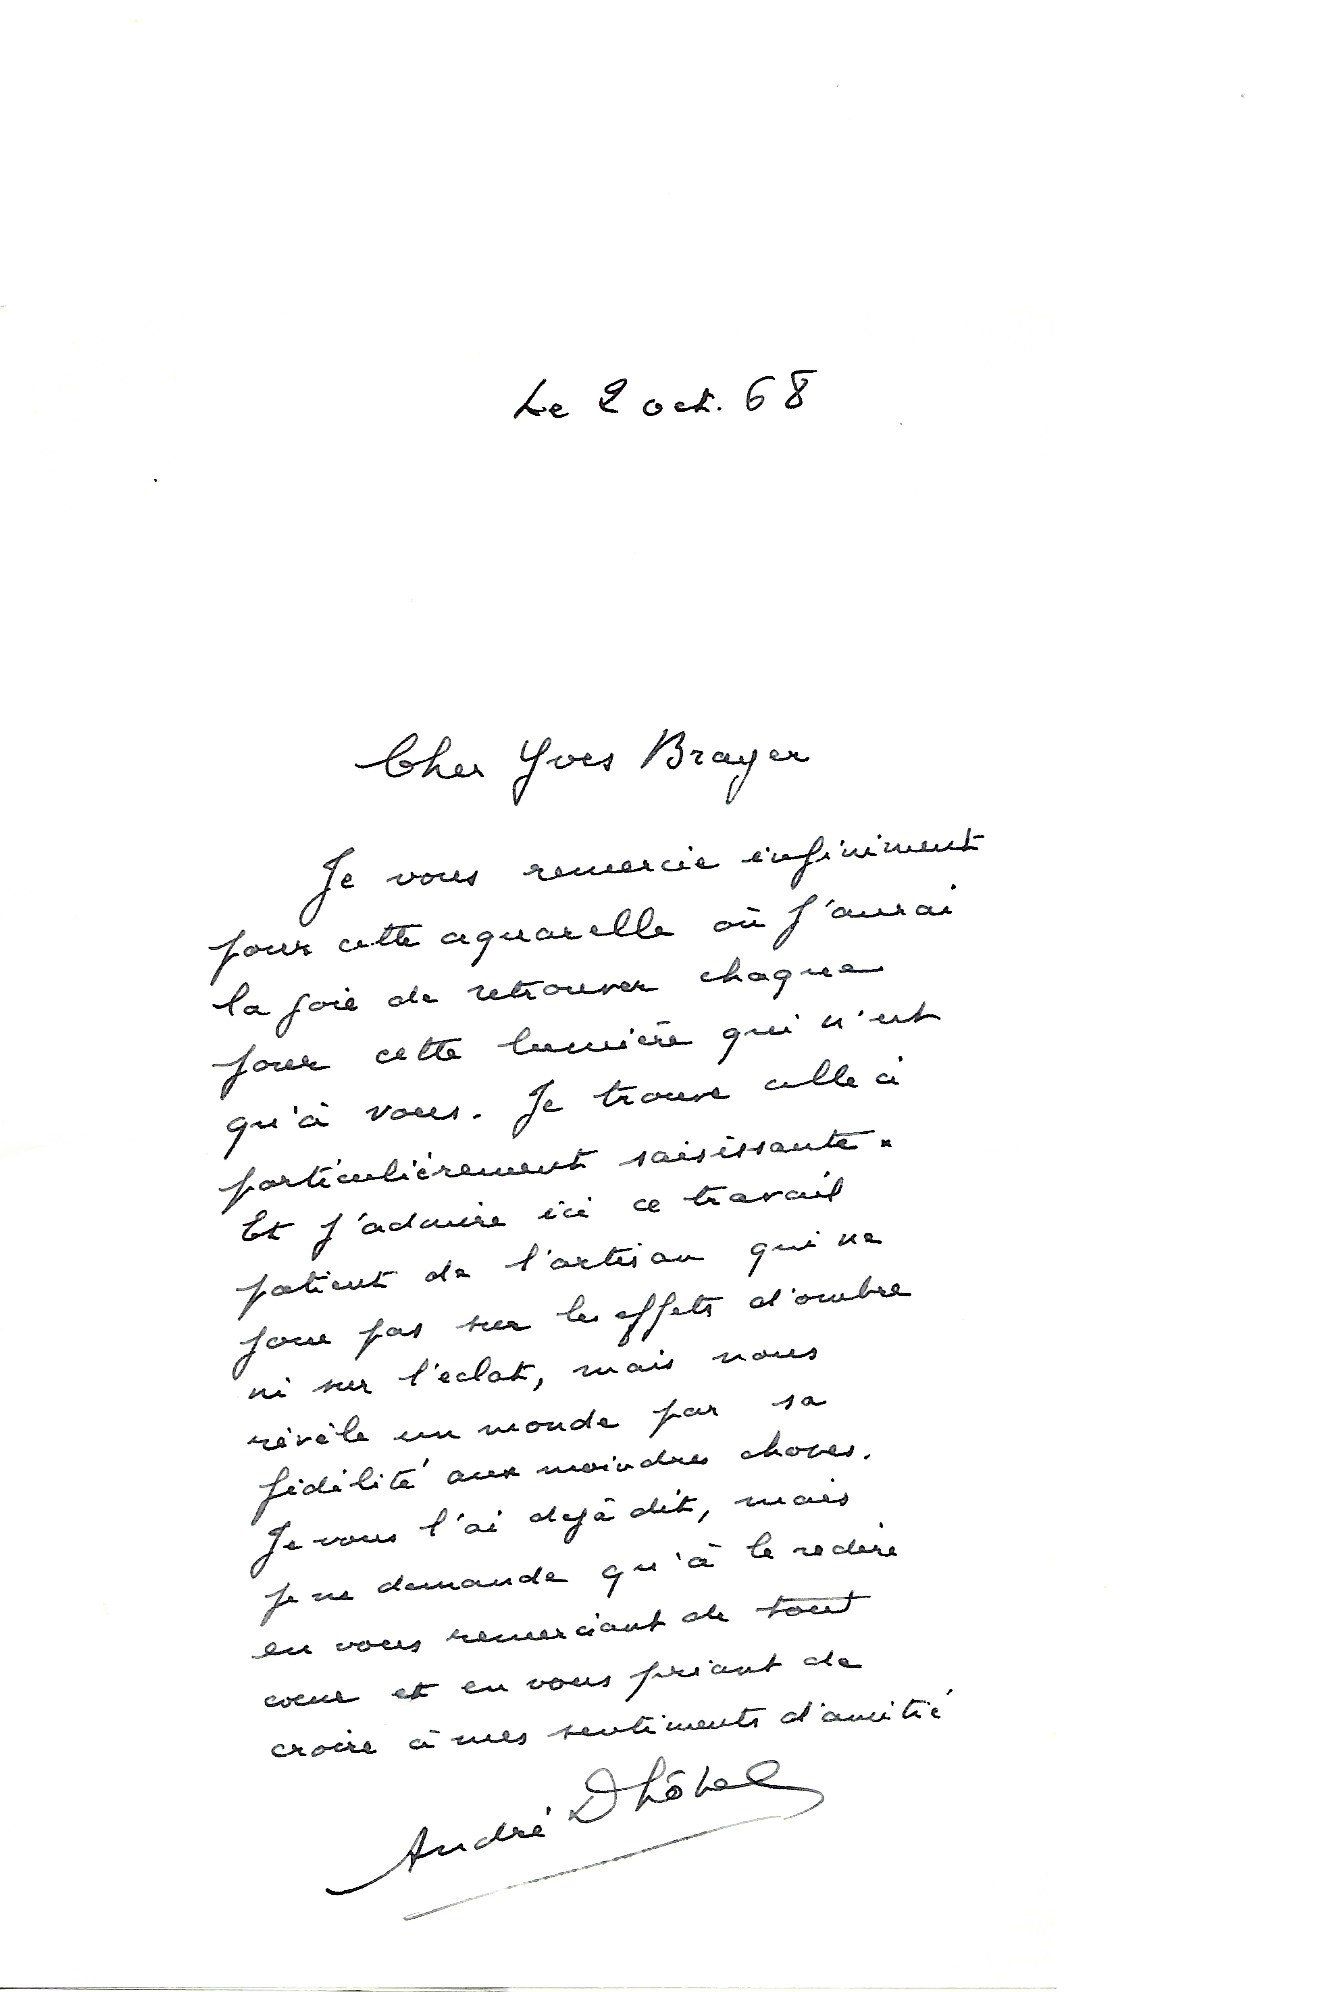 Le 2 oct. 68
Cher Yves Brayer
Je vous remercie infiniment
pour cette aquarelle où j'aurai
la joie de retrouver chaque
jour cette lumière qui n'est
qu'à vous. Je trouve celle ci
particulièrement saisissante.
Et j'admire ici ce travail
patient de l'artisan qui ne
joue pas sur les effets d'ombre
ni sur l'éclat, mais nous
révèle un monde par sa
fidélité aux moindres choses.
Je vous l'ai dejà dit, mais
je ne demande qu'à le redire
en vous remerciant de tout
cœur et en vous priant de
croire à mes sentiments d'amitié
André Dhôtel